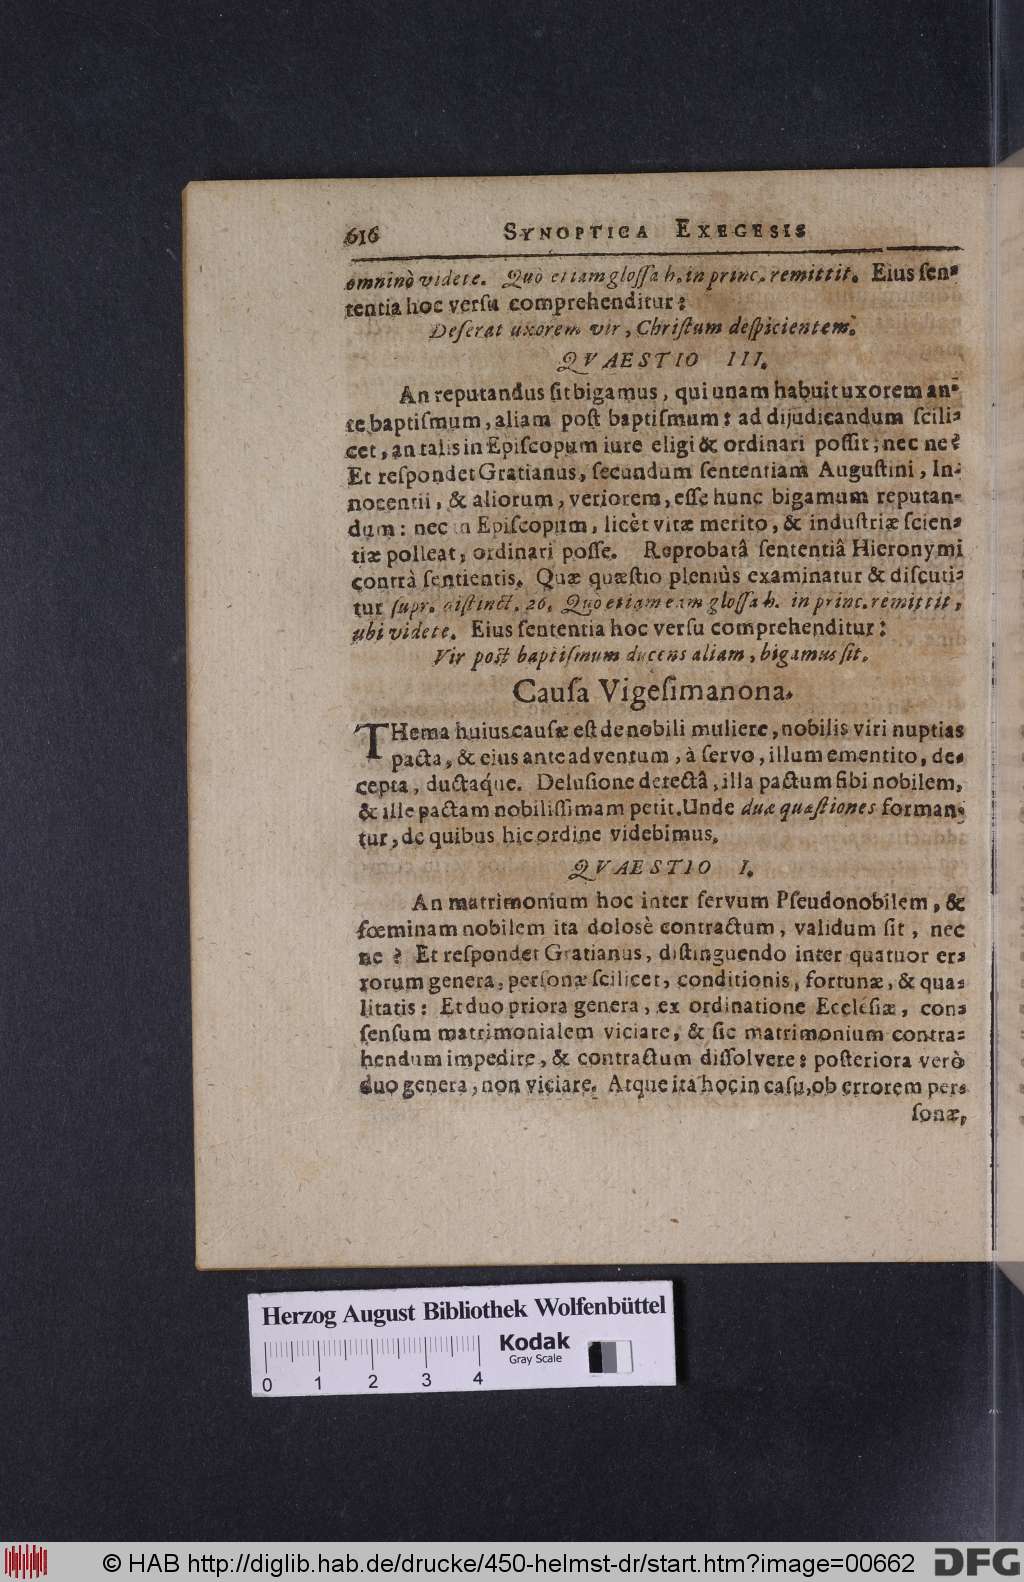 616 SYNOPTICA EXEGESIS
omninò videte. Quò etiam glossa h. in princ. remittit. Eius sen-
tentia hoc versu comprehenditur:
Deserat uxorem vir, Christum despicientem.
QVAESTIO III.
An reputandus sit bigamus, qui unam habuit uxorem an-
te baptismum, aliam post baptismum: ad dijudicandum scili-
cet, an talis in Episcopum iure eligi & ordinari possit; nec ne?
Et respondet Gratianus, secundum sententiam Augustini, In-
nocentii, & aliorum, veriorem, esse hunc bigamum reputan-
dum: nec in Episcopum, licèt vitæ merito, & industriæ scien-
tiæ polleat, ordinari posse. Reprobatâ sententiâ Hieronymi
contrà sentientis. Quæ quæstio pleniùs examinatur & discuti-
tur supr. distinct. 26. Quò etiam eam glossa h. in princ. remittit,
ubi videte. Eius sententia hoc versu comprehenditur:
Vir post baptismum ducens aliam, bigamus sit.
Causa Vigesimanona.
THema huius causæ est de nobili muliere, nobilis viri nuptias
pacta, & eius ante adventum, à servo, illum ementito, de-
cepta, ductaque. Delusione detectâ, illa pactum sibi nobilem,
& ille pactam nobilissimam petit. Unde duæ quæstiones forman-
tur, de quibus hic ordine videbimus.
QVAESTIO I.
An matrimonium hoc inter servum Pseudonobilem, &
fœminam nobilem ita dolosè contractum, validum sit, nec
ne? Et respondet Gratianus, distinguendo inter quatuor er-
rorum genera, personæ scilicet, conditionis, fortunæ, & qua-
litatis: Et duo priora genera, ex ordinatione Ecclesiæ, con-
sensum matrimonialem viciare, & sic matrimonium contra-
hendum impedire, & contractum dissolvere: posteriora verò
duo genera, non viciare. Atque ita hoc in casu, ob errorem per-
sonæ,
Herzog August Bibliothek Wolfenbüttel
Kodak
Gray Scale
0 1 2 3 4
© HAB http://diglib.hab.de/drucke/450-helmst-dr/start.htm?image=00662 DFG